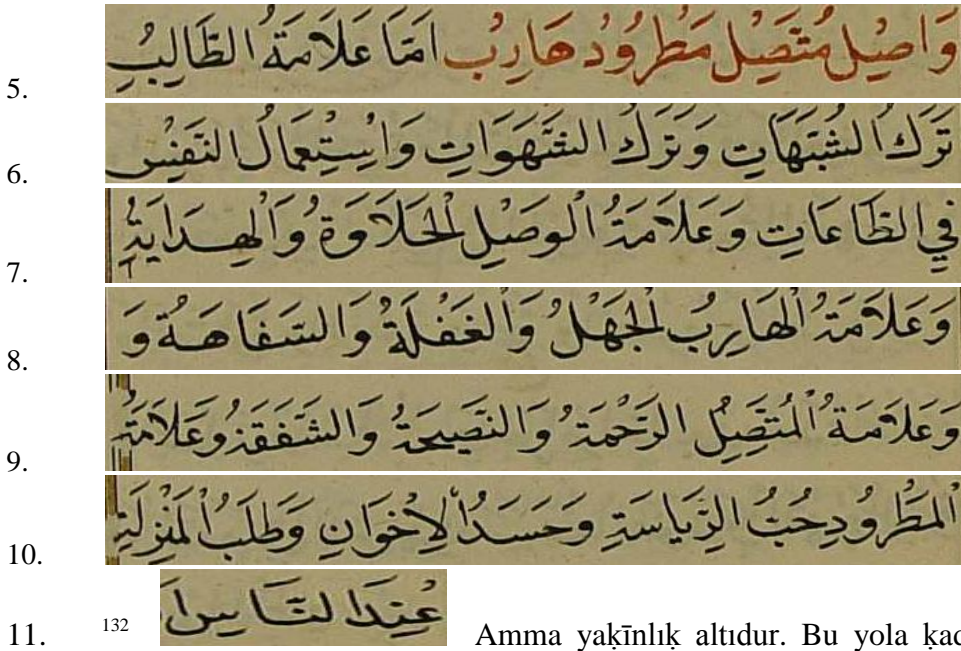 5. وَاصِيلْ مُتَّصِيلْ مَطْرُودْ هَارِبْ اَمَّا عَلَامَةُ الطَّالِبُ
6. تَرْكُ الشُّبَهَاتِ وَتَرْكُ الشَّهَوَاتِ وَاسْتِعْمَالُ النَّفْسِ
7. فِي الطَّاعَاتِ وَعَلَامَةُ الْوَصِيلِ الْحَلَاوَةُ وَالْهِدَايَةُ
8. وَعَلَامَةُ الْهَارِبُ الْجَهْلُ وَالْغَفْلَةُ وَالسَّفَاهَةُ وَ
9. وَعَلَامَةُ الْمُتَّصِيلُ الرَّحْمَةُ وَالنَّصِيحَةُ وَالشَّفَقَةُ وَعَلَامَةُ
10. الْمَطْرُودِ حُبُّ الرِّيَاسَةِ وَحَسَدُ الْاِخْوَانِ وَطَلَبُ الْمَنْزِلَةِ
11. 132 عِنْدَ النَّاسِ Amma yaḳīnlıḳ altıdur. Bu yola ḳad